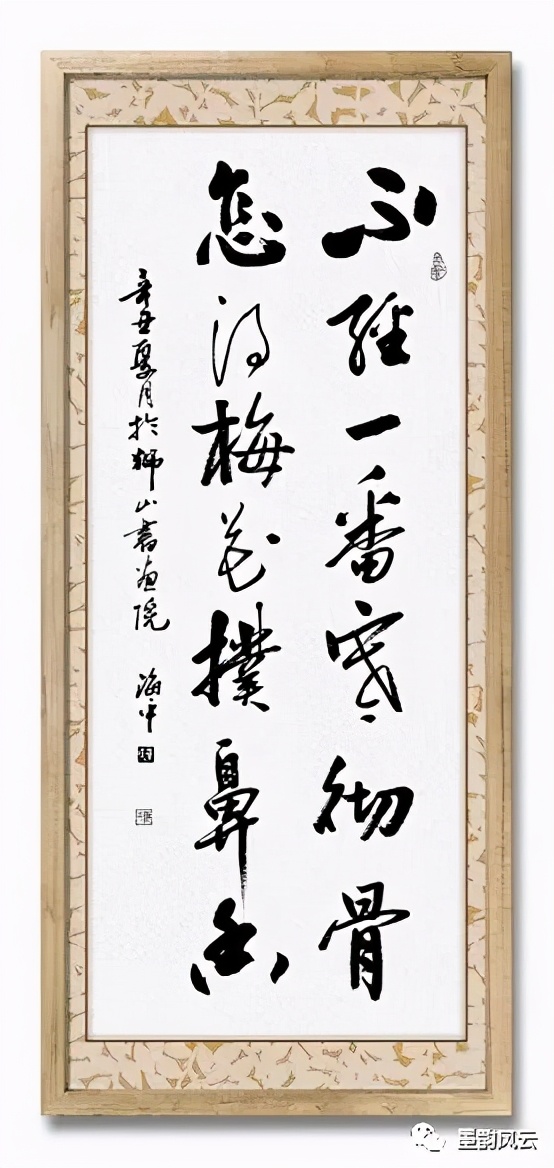 不經一番寒彻骨
怎得梅花撲鼻香
辛丑夏月於獅山書画院 海平
韵风云